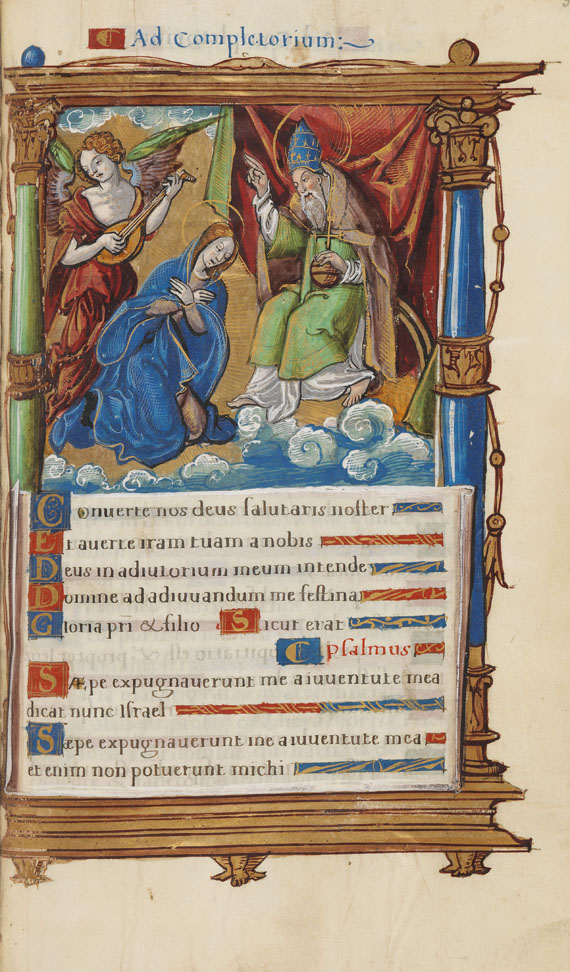 Ad Completorium:
Conuerte nos deus salutaris noster
Et auerte iram tuam a nobis
Deus in adiutorium meum intende
Domine ad adiuuandum me festina
Gloria pri & filio Sicut erat
psalmus
SÆpe expugnauerunt me a iuuentute mea
dicat nunc Israel
Sæpe expugnauerunt me a iuuentute mea
et enim non potuerunt michi